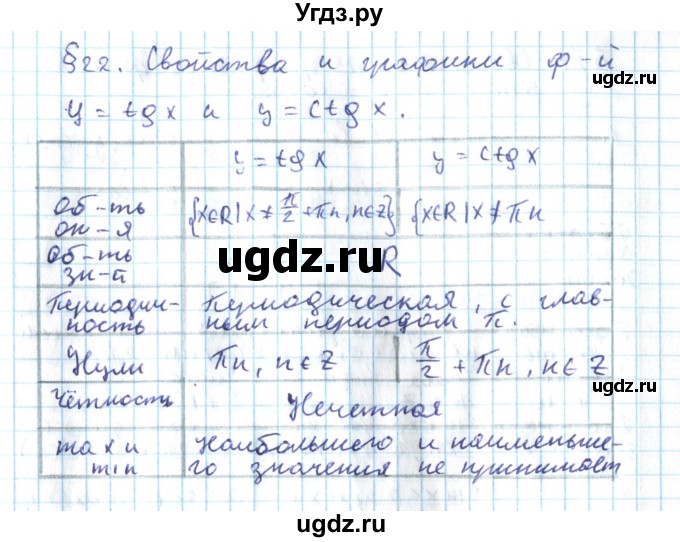 Угдз.ру
§22. Свойства и графики ф-й
y = tg x и y = ctg x.
y = tg x
y = ctg x
Об-ть
оп-я
{x∈R | x ≠ π/2 + πn, n∈Z}
{x∈R | x ≠ πn
Об-ть
зн-й
R
Периодич-
ность
Периодическая, с глав-
ным периодом π.
Нули
πn, n∈Z
π/2 + πn, n∈Z
Чётность
Нечетная
max и
min
Наибольшего и наименьше-
го значения не принимает
ugdz.ru
ugdz.ru
ugdz.ru
ugdz.ru
ugdz.ru
ugdz.ru
ugdz.ru
ugdz.ru